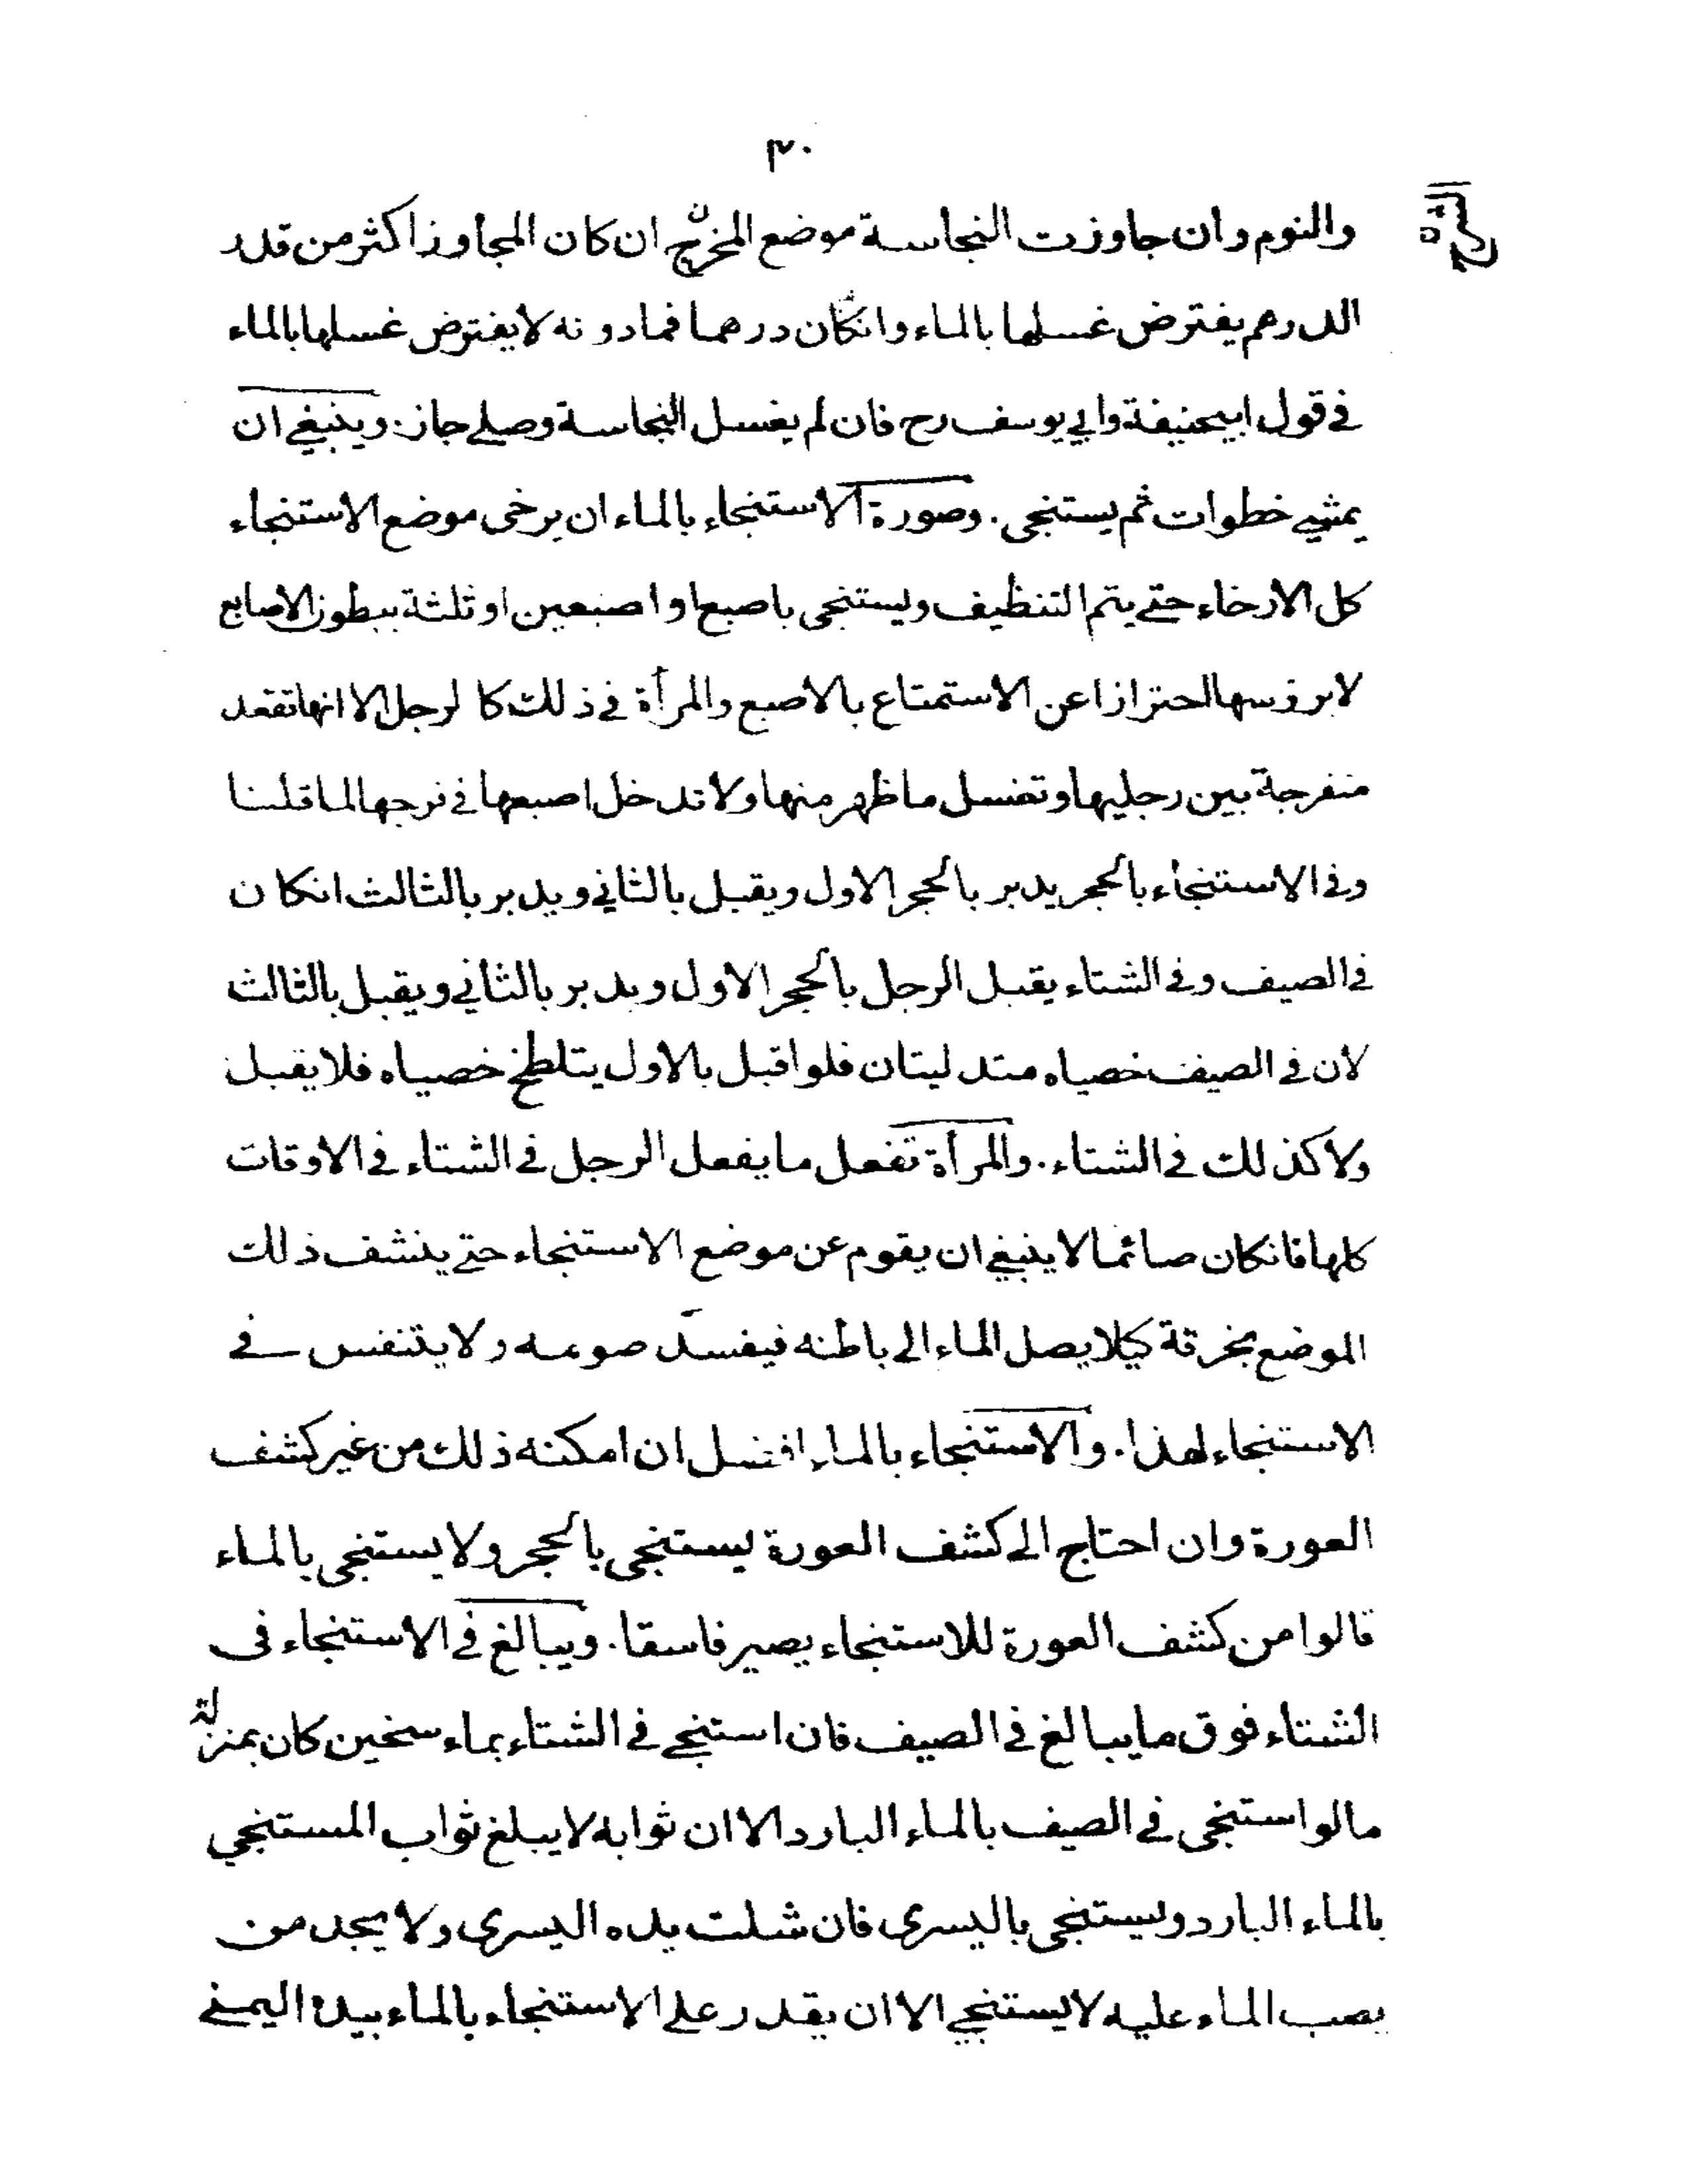 ٣٠
والنوم وان جاوزت النجاسة موضع المخرج ان كان المجاوز اكثر من قدر
الدرهم يفترض غسلها بالماء وانكان درهما فمادونه لايفترض غسلها بالماء
في قول ابيحنيفة وابي يوسف رح فان لم يغسل النجاسة وصلے جاز. وينبغے ان
يمشے خطوات ثم يستنجى. وصورة الاستنجاء بالماء ان يرخى موضع الاستنجاء
كل الارخاء حتے يتم التنظيف ويستنجى باصبع او اصبعين او ثلثة ببطون الاصابع
لابرؤسها احترازا عن الاستمتاع بالاصبع والمرأة في ذلك كا لرجل الا انها تقعد
منفرجة بين رجليها وتغسل ماظهر منها ولا تدخل اصبعها في فرجها لما قلنا
وفي الاستنجاء بالحجر يدبر بالحجر الاول ويقبل بالثاني ويدبر بالثالث انكان
في الصيف وفي الشتاء يقبل الرجل بالحجر الاول ويدبر بالثاني ويقبل بالثالث
لان في الصيف خصياه متدليتان فلو اقبل بالاول يتلطخ خصياه فلا يقبل
ولا كذلك في الشتاء. والمرأة تفعل مايفعل الرجل في الشتاء في الاوقات
كلها فانكان صائما لا ينبغے ان يقوم عن موضع الاستنجاء حتے ينشف ذلك
الموضع بخرقة كيلا يصل الماء الى باطنه فيفسد صومه ولا يتنفس في
الاستنجاء لهذا. والاستنجاء بالماء افضل ان امكنه ذلك من غير كشف
العورة وان احتاج الى كشف العورة يستنجى بالحجر ولا يستنجى بالماء
قالوا من كشف العورة للاستنجاء يصير فاسقا. ويبالغ في الاستنجاء فى
الشتاء فوق ما يبالغ في الصيف فان استنجے في الشتاء بماء سخين كان بمنزلة
مالو استنجى في الصيف بالماء البارد الا ان ثوابه لايبلغ ثواب المستنجي
بالماء البارد ويستنجى باليسرى فان شلت يده اليسرى ولا يجد من
يصب الماء عليه لايستنجے الا ان يقدر على الاستنجاء بالماء بيده اليمنے